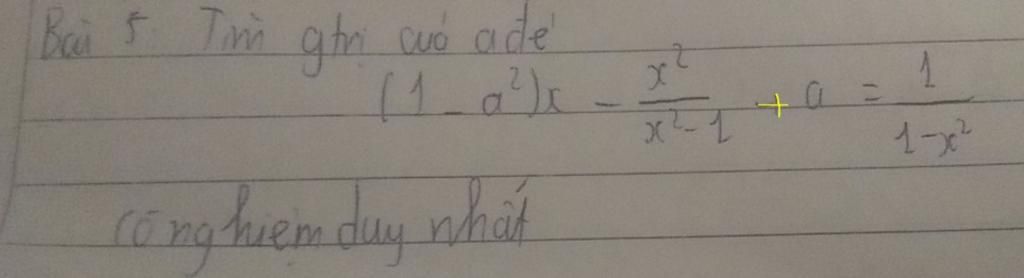 Bài 5. Tìm gtrị cuả a để
(1 - a²)x - x²/(x² - 1) + a = 1/(1 - x²)
có nghiệm duy nhất